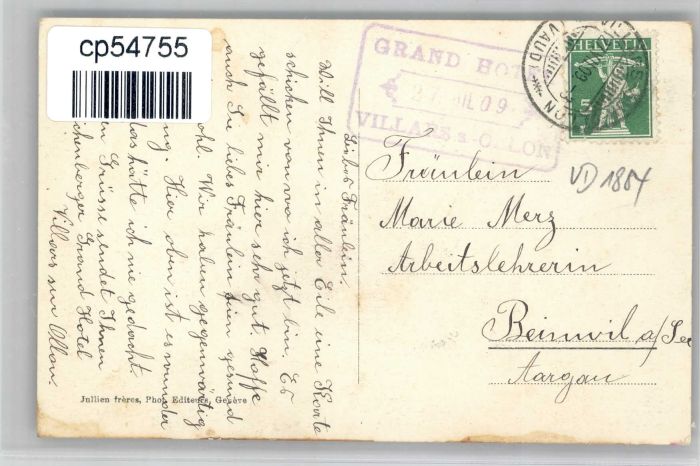 cp54755
GRAND HOTEL
27 JUIL 09
VILLARS s. OLLON
HELVETIA
5
(VAUD)
VD 1884
Fräulein
Marie Merz
Arbeitslehrerin
Beinwil a/See
Aargau
Liebes Fräulein.
Will Ihnen in aller Eile eine Karte
schicken von wo ich jetzt bin. Es
gefällt mir hier sehr gut. Hoffe
auch Sie liebes Fräulein sein gesund
ohl. Wir haben gegenwärtig
ng. Hier oben ist es wunder
las hätte ich nie gedacht.
en Grüsse sendet Ihnen
chenberger Grand Hotel
Villars sur Ollon.
Jullien frères, Phot. Editeurs, Genève